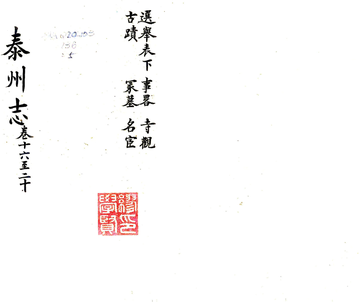 選舉表下 事畧 寺觀
古蹟 冢墓 名宦
泰州志
卷十六至二十